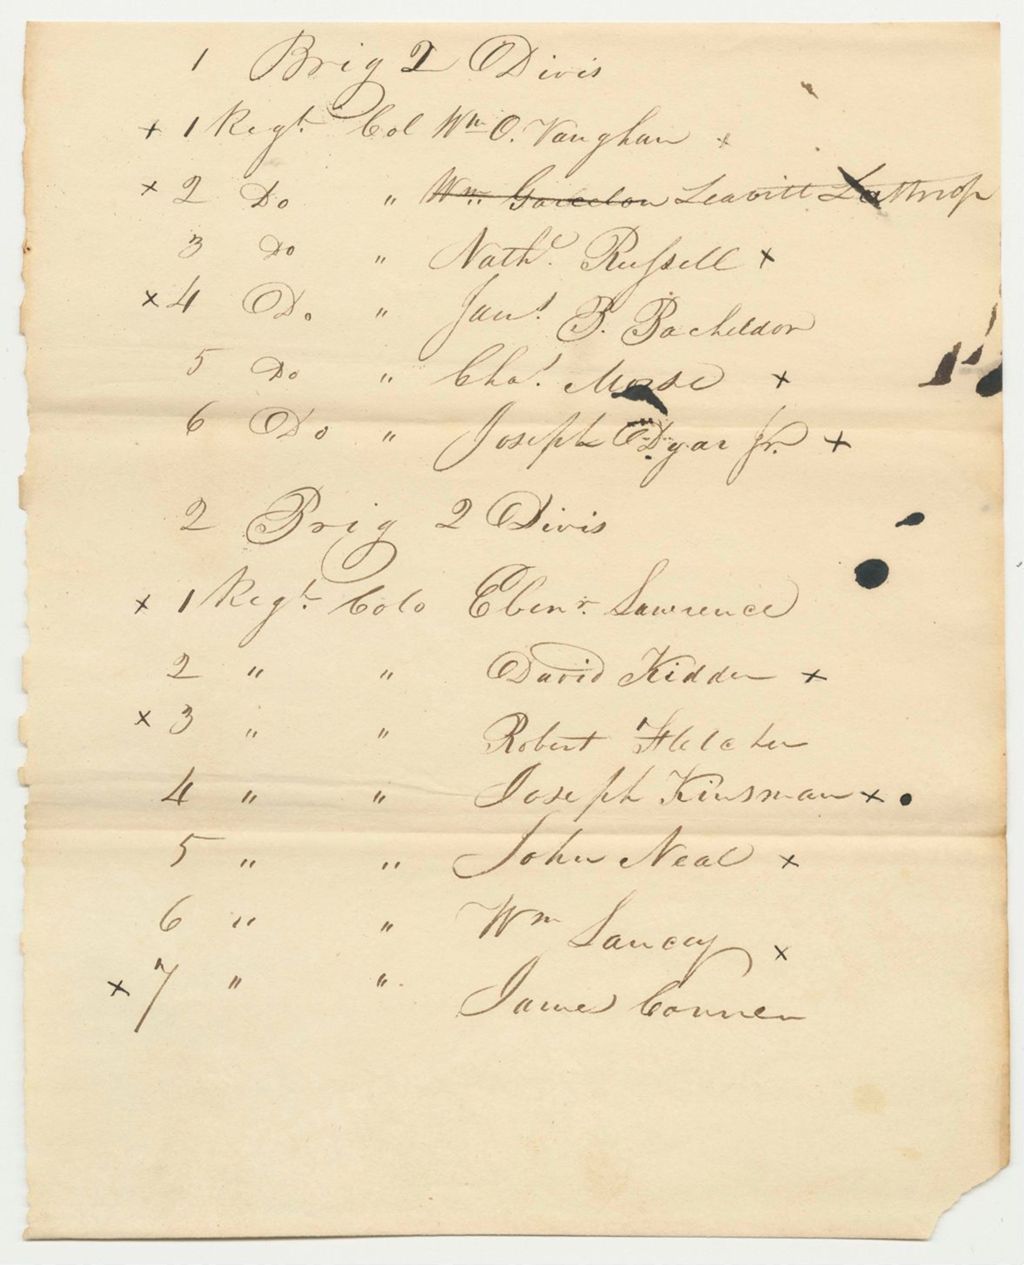 1 Brig 2 Divis
x 1 Regt. Col Wm O. Vaughan x
x 2 Do " Wm Garcelon Leavitt Lothrop
3 Do " Nathl. Russell x
x 4 Do. " Jams. B. Bacheldor
5 Do " Chas. Morse x
6 Do " Joseph Dyar Jr. x
2 Brig 2 Divis
x 1 Regt. Colo Ebenr. Lawrence
2 " " David Kidder x
x 3 " " Robert Fletcher
4 " " Joseph Kinsman x
5 " " John Neal x
6 " " Wm Lancey x
x 7 " " James Conner